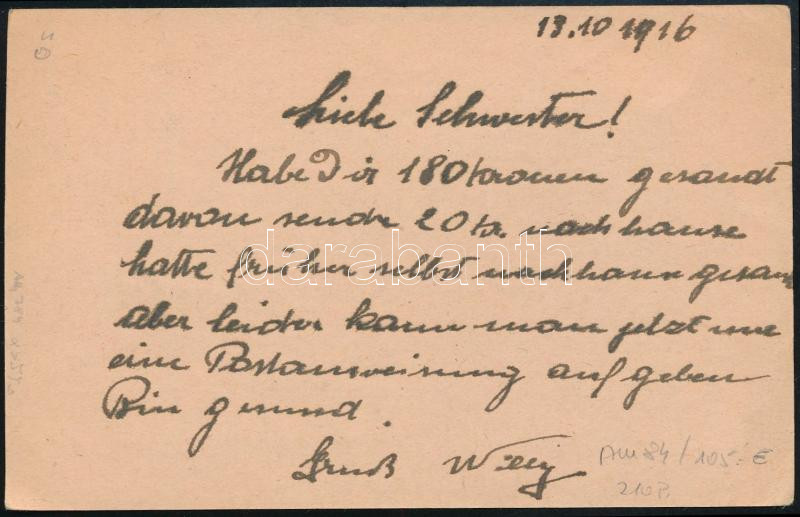 13.10 1916
Liebe Schwester!
Habe Dir 180 kronen gesandt
davon sende 20 kr. nach hause
hatte früher selbst nach hause gesandt
aber leider kann man jetzt nur
eine Postanweisung auf geben
Bin gesund.
Gruß Willy
AM 84/105.- E
210P.
darabanth